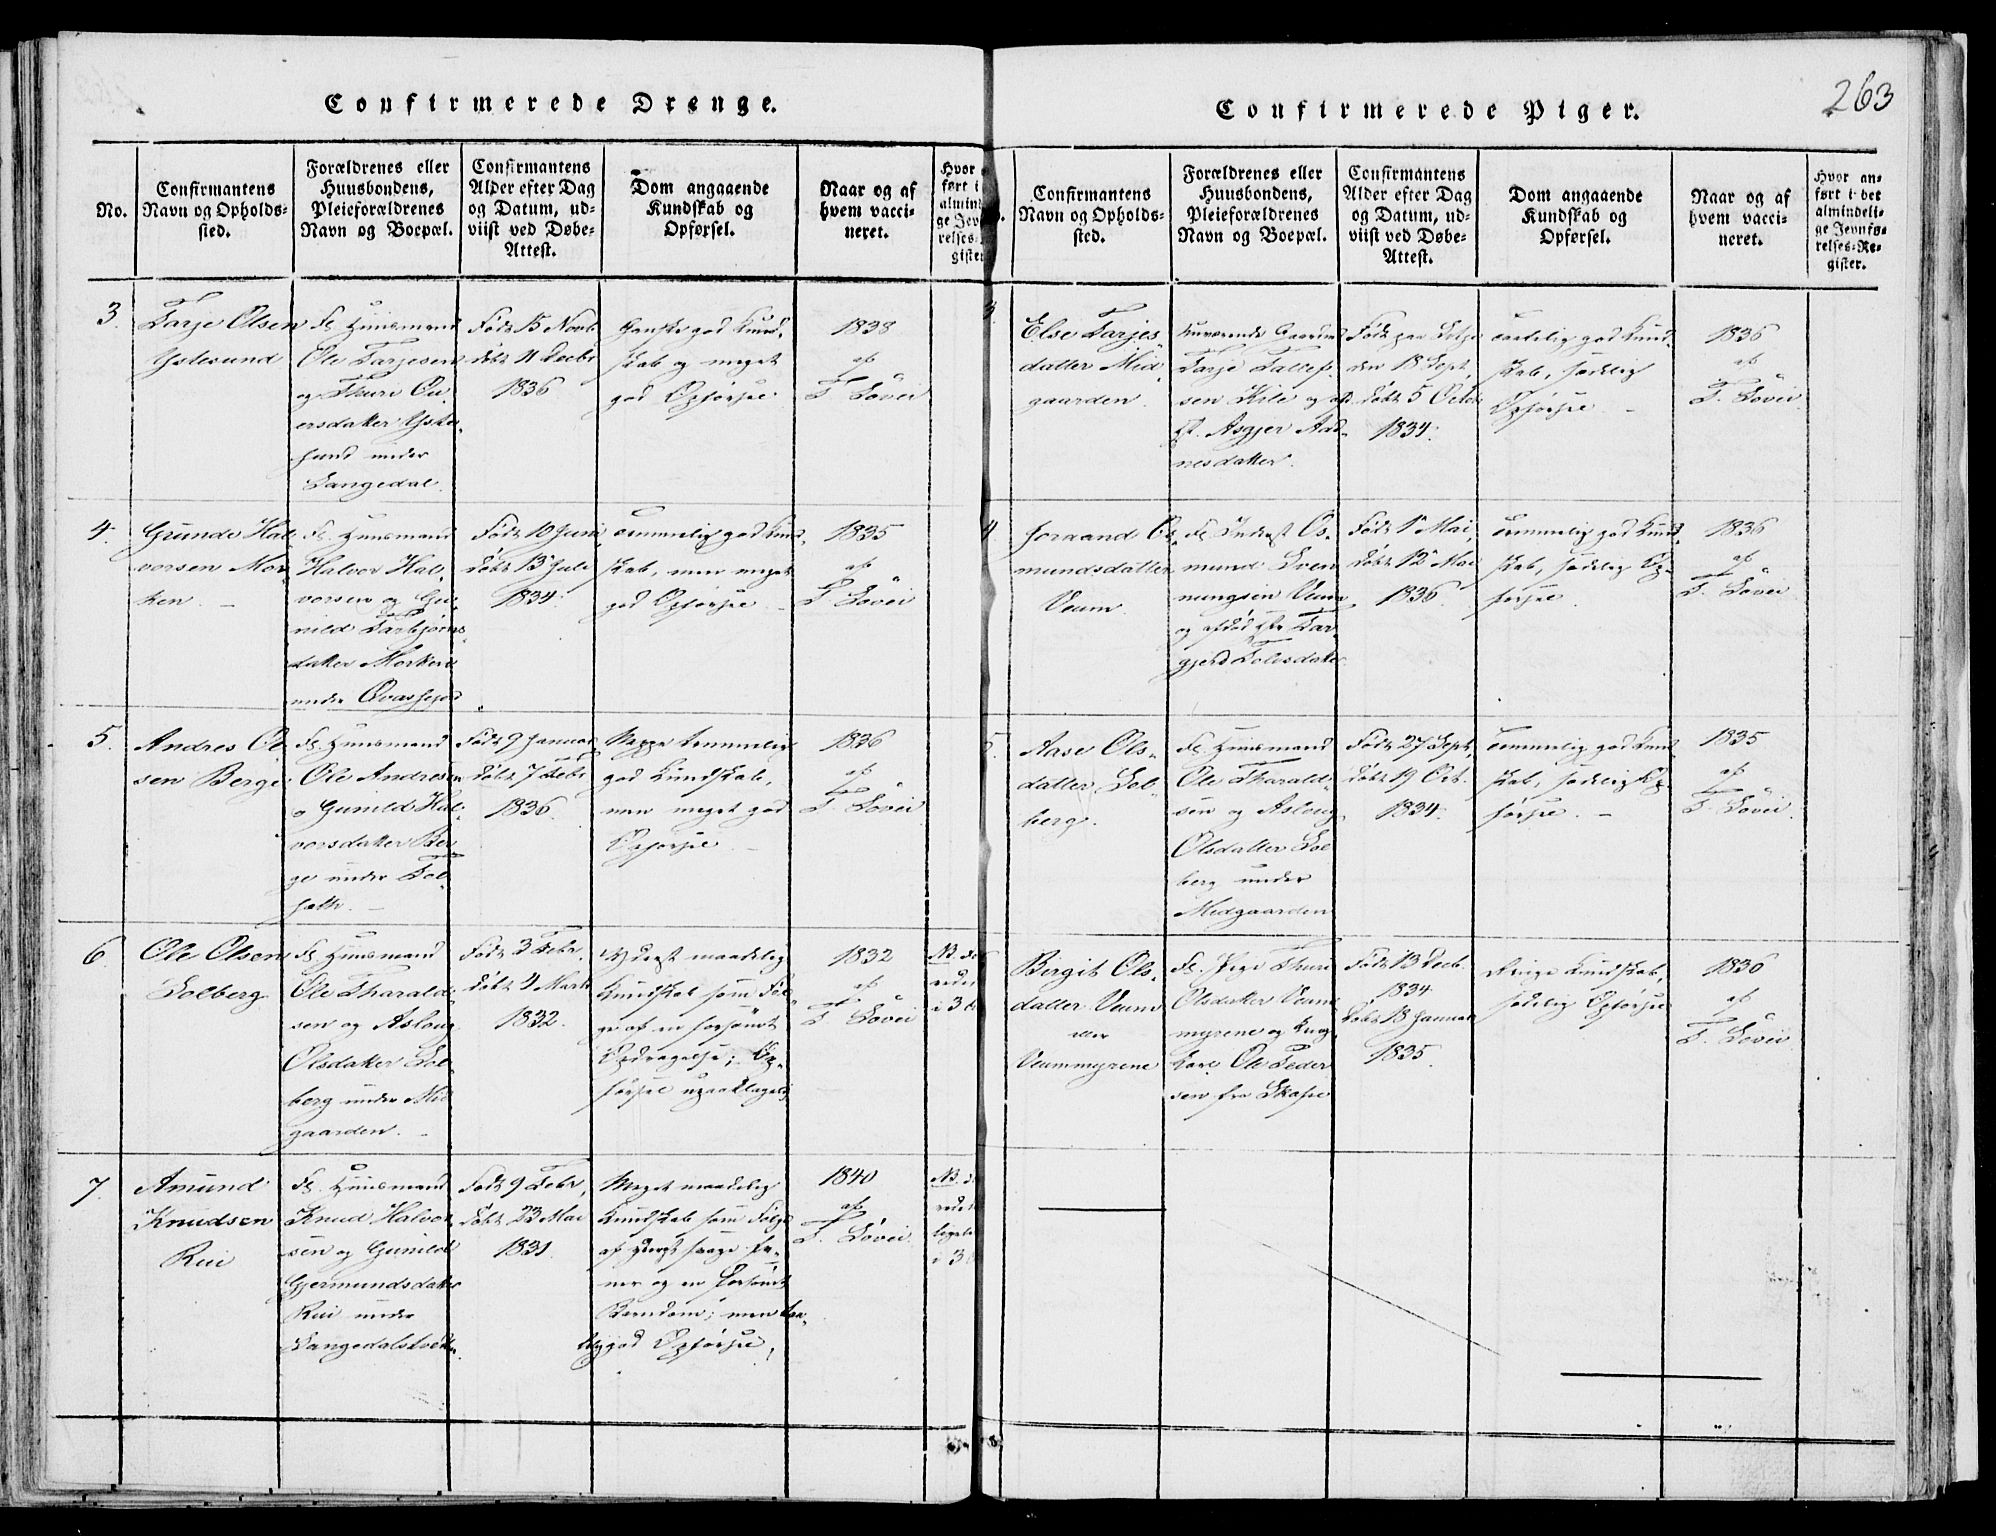 263
Confirmerede Drenge.
No.
Confirmantens
Navn og Opholds-
sted.
Forældrenes eller
Huusbondens,
Pleieforældrenes
Navn og Boepæl.
Confirmantens
Alder efter Dag
og Datum, ud-
viist ved Døbe-
Attest.
Dom angaaende
Kundskab og
Opførsel.
Naar og af
hvem vacci-
neret.
Hvor
ført i
almind
ge Jev
relses-
gister
3.
Tarje Olsen
Ystesund
Fs. Huusmand
Ole Tarjesen
og Thure
ersdatter Yste-
sund under
Langedal.
Født 15 Novb.
døbt 11 Decbr
1836
Ganske god Kund-
skab og meget
god Opførsel
1838
af
T. Løvei
4.
Grunde Hal-
vorsen Mor-
ken. –
Fs. Huusmand
Halvor Hal-
vorsen og Gu-
nild Tarbjørns-
datter Morken
under Qvasfjord
Født 10 Juni,
døbt 13 Juli
1834.
temmelig god Kund-
skab, men meget
god Opførsel –
1835
af
T. Løvei
5.
Andres Ol-
sen Berge
Fs. Huusmand
Ole Andresen
o Gunild Hal-
vorsdatter Ber-
ge under Tve-
Født 9 Januar
døbt 7 Febr
1836.
Neppe temmelig
god Kundskab,
men meget god
Opførsel –
1836
af
T. Løvei
6.
Ole Olsen
Solberg
Fs. Huusmand
Ole Tharald-
sen og Asloug
Olsdatter Sol-
berg under Mid-
gaarden. –
Født 3 Febr.
døbt 4 Marts
1832.
Yderst maadelig
Kundskab som Føl-
ge af en forsømt
Opdragelse; Op-
førsel upaaklagelig
1832
af
T. Løvei
NB.
i 3
7.
Amund
Knudsen
Rui
Fs. Huusmand
Knud Halvor-
sen og Gunild
Gjermundsdatter
Rui under
Langedalstvedt.
Født 9 Febr,
døbt 23 Mai
1831.
Meget maadelig
Kundskab som Følge
af yderst svage Ev-
ner og en forsømt
Barndom; men
god Opførsel,
1840
af
T. Løvei
NB.
i 3
Confirmerede Piger.
Confirmantens
Navn og Opholds-
sted.
Forældrenes eller
Huusbondens,
Pleieforældrenes
Navn og Boepæl.
Confirmantens
Alder efter Dag
og Datum, ud-
viist ved Døbe-
Attest.
Dom angaaende
Kundskab og
Opførsel.
Naar og af
hvem vacci-
neret.
Hvor an-
ført i det
almindeli-
ge Jevnfø-
relses-Re-
gister.
3
Else Tarjes-
datter Mid-
gaarden.
nuværende Gaardm.
Tarje Tallef-
sen Kile og
Asgjer Aad-
nesdatter.
Født paa
den 18 Sept,
døbt 5 Octob
1834.
god Kund-
skab, sædelig
Opførsel –
1836
af
T. Løvei
4.
Joraand Os-
mundsdatter
Veum
Fs. Inderst Os-
mund Sven-
nungsen Veum
og afdød Tar-
gjerd Tolvsdatter
Født 1 Mai,
døbt 12 Mai
1836.
temmelig god Kund-
skab, sædelig Op-
førsel.
1836
af
T. Løvei
5.
Aase Ols-
datter Sol-
berg.
Fs. Huusmand
Ole Tharald-
sen og Asloug
Olsdatter Sol-
berg under
Midgaarden
Født 27 Sept,
døbt 19 Oct.
1834.
temmelig god Kund-
skab, sædelig Op-
førsel. –
1835
af
T. Løvei
Bergit Ols-
datter Veum
eller
Veummyrene
Fs. Pige Thuri
Olsdatter Veum-
myrene og Ung-
karl Ole Peder-
sen fra Skafse
Født 13 Decb.
1834
døbt 18 Januar
1835.
Ringe Kundskab,
sædelig Opførsel
1836
af
T. Løvei